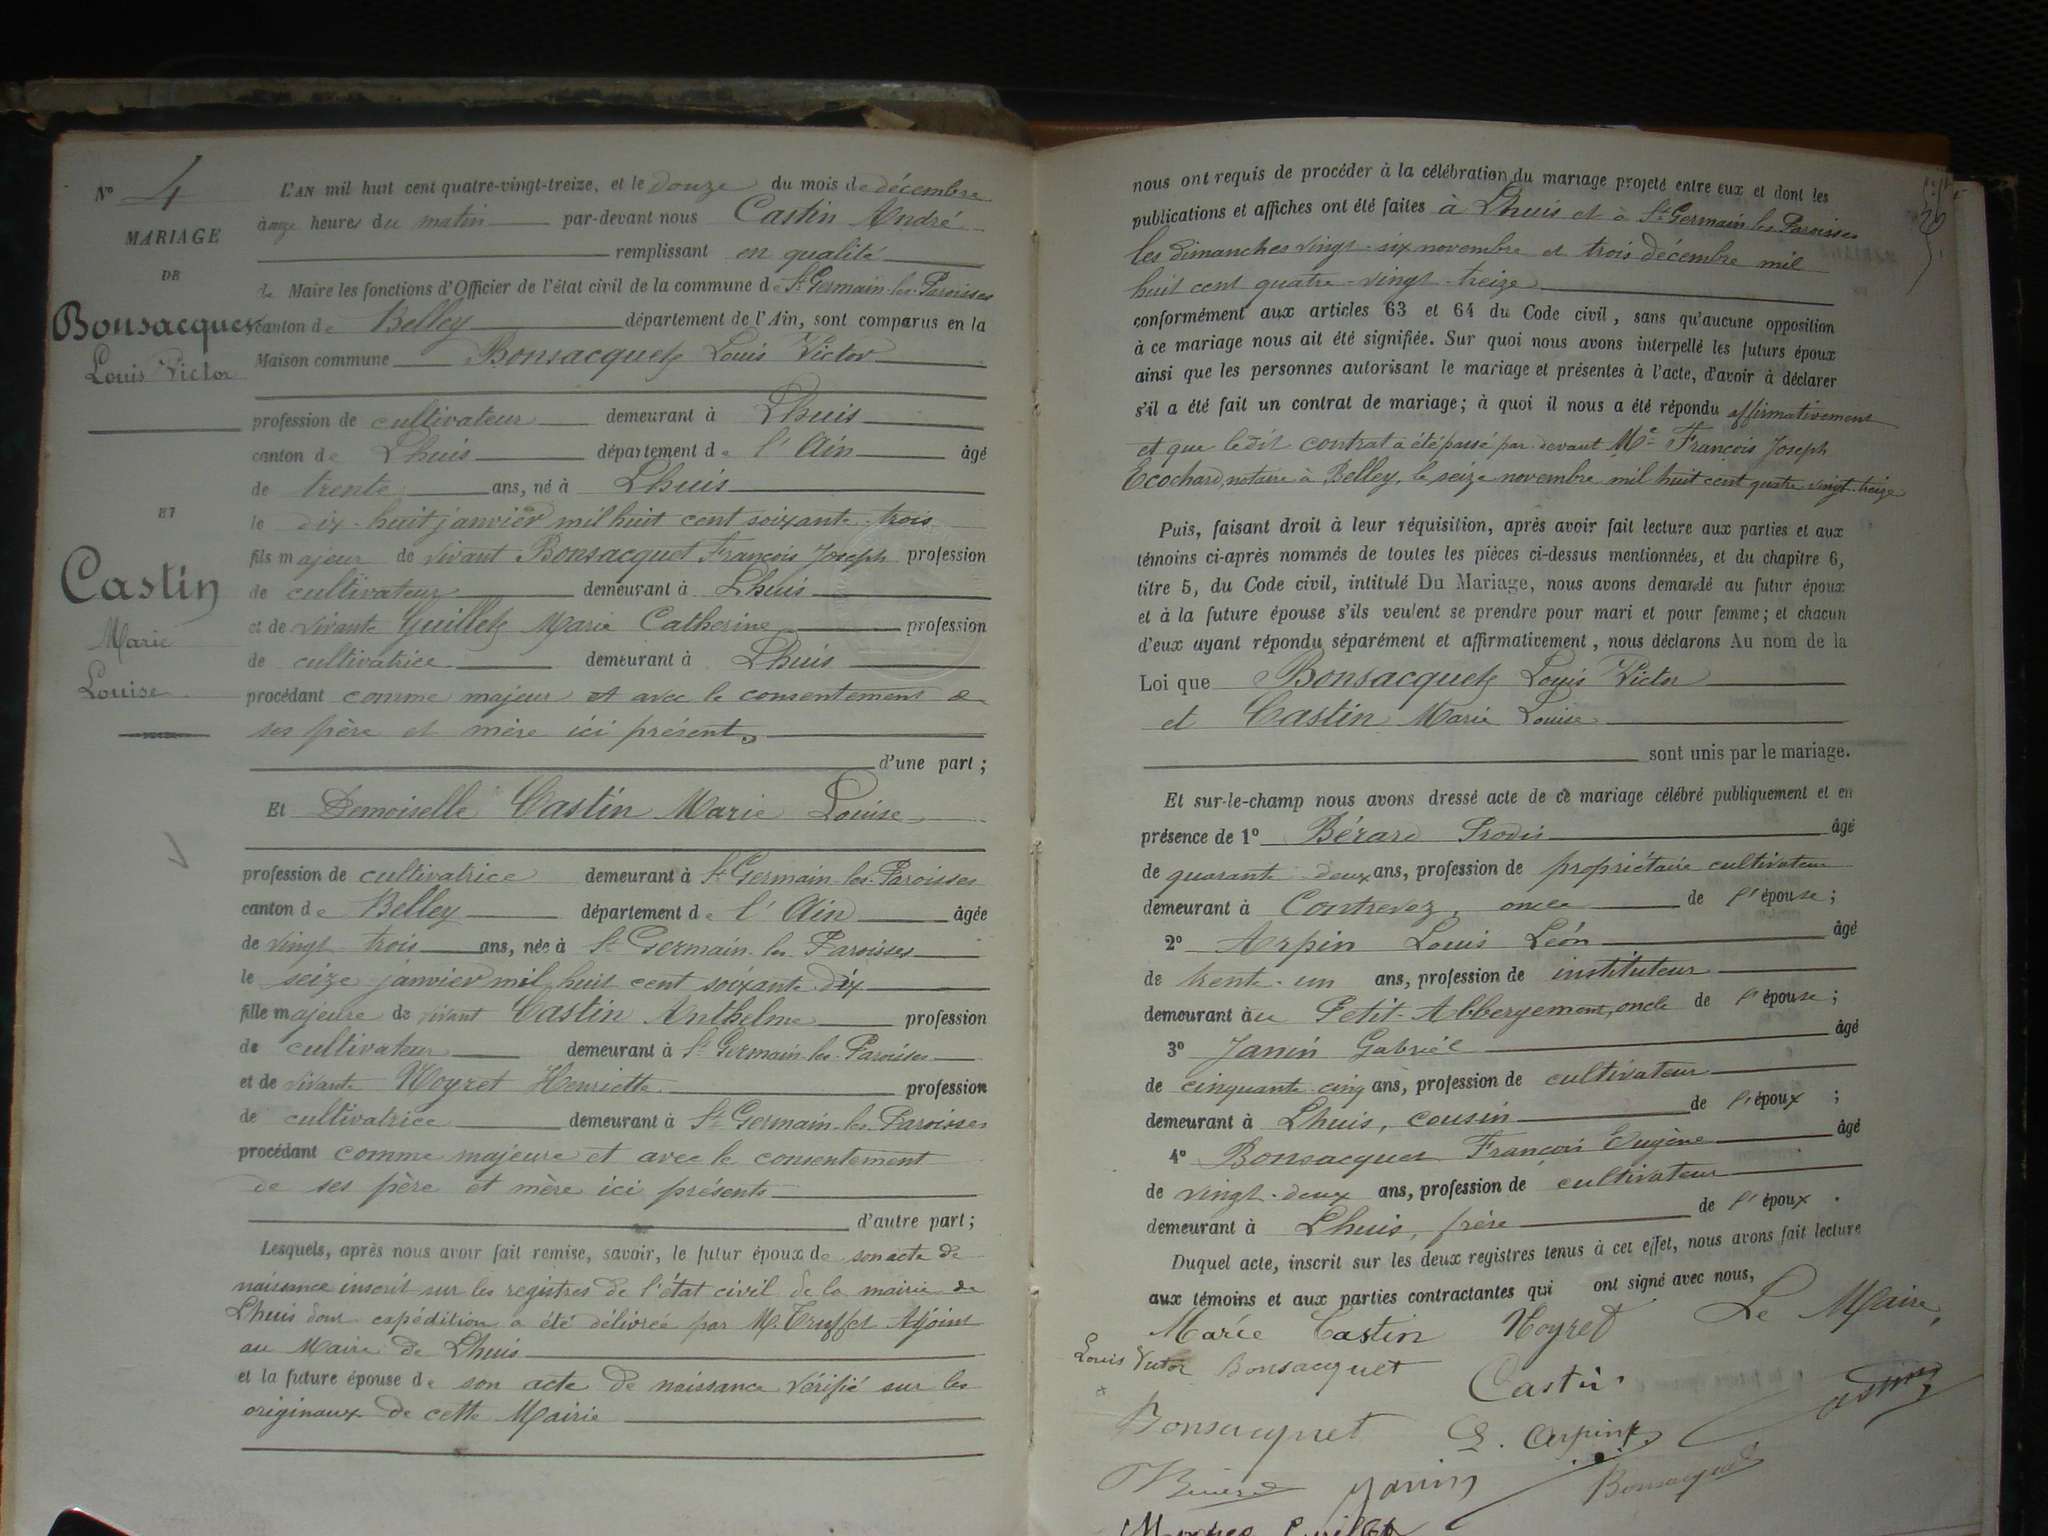 N° 4
MARIAGE
DE
Bonsacquet
Louis Victor
ET
Castin
Marie
Louise
L'AN mil huit cent quatre-vingt-treize, et le douze du mois de décembre
à onze heures du matin par-devant nous Castin André
remplissant en qualité
de Maire les fonctions d'Officier de l'état civil de la commune de St Germain-les-Paroisses
canton de Belley département de l'Ain, sont comparus en la
Maison commune Bonsacquet Louis Victor
profession de cultivateur demeurant à Lhuis
canton de Lhuis département de l'Ain âgé
de trente ans, né à Lhuis
le dix-huit janvier mil huit cent soixante-trois
fils majeur de vivant Bonsacquet François Joseph profession
de cultivateur demeurant à Lhuis
et de vivante Guillet Marie Catherine profession
de cultivatrice demeurant à Lhuis
procédant comme majeur et avec le consentement de
ses père et mère ici présents
d'une part ;
Et Demoiselle Castin Marie Louise
profession de cultivatrice demeurant à St Germain-les-Paroisses
canton de Belley département de l'Ain âgée
de vingt trois ans, née à St Germain-les-Paroisses
le seize janvier mil huit cent soixante-dix
fille majeure de vivant Castin Anthelme profession
de cultivateur demeurant à St Germain-les-Paroisses
et de vivante Noyret Henriette profession
de cultivatrice demeurant à St Germain-les-Paroisses
procédant comme majeure et avec le consentement
de ses père et mère ici présents
d'autre part ;
Lesquels, après nous avoir fait remise, savoir, le futur époux de son acte de
naissance inscrit sur les registres de l'état civil de la mairie de
Lhuis dont expédition a été délivrée par M. Truffet Adjoint
au Maire de Lhuis
et la future épouse de son acte de naissance vérifié sur les
originaux de cette Mairie
nous ont requis de procéder à la célébration du mariage projeté entre eux et dont les
publications et affiches ont été faites à Lhuis et à St Germain-les-Paroisses
les dimanches vingt-six novembre et trois décembre mil
huit cent quatre-vingt-treize
conformément aux articles 63 et 64 du Code civil, sans qu'aucune opposition
à ce mariage nous ait été signifiée. Sur quoi nous avons interpellé les futurs époux
ainsi que les personnes autorisant le mariage et présentes à l'acte, d'avoir à déclarer
s'il a été fait un contrat de mariage ; à quoi il nous a été répondu affirmativement
et que ledit contrat a été passé par devant Me François Joseph
Ecochard, notaire à Belley, le seize novembre mil huit cent quatre vingt-treize
Puis, faisant droit à leur réquisition, après avoir fait lecture aux parties et aux
témoins ci-après nommés de toutes les pièces ci-dessus mentionnées, et du chapitre 6,
titre 5, du Code civil, intitulé Du Mariage, nous avons demandé au futur époux
et à la future épouse s'ils veulent se prendre pour mari et pour femme ; et chacun
d'eux ayant répondu séparément et affirmativement, nous déclarons Au nom de la
Loi que Bonsacquet Louis Victor
et Castin Marie Louise
sont unis par le mariage.
Et sur-le-champ nous avons dressé acte de ce mariage célébré publiquement et en
présence de 1° Bérard âgé
de quarante-deux ans, profession de propriétaire cultivateur
demeurant à Contrevoz, oncle de l'épouse ;
2° Arpin Louis Léon âgé
de trente-un ans, profession de instituteur
demeurant au Petit-Abbergement, oncle de l'épouse ;
3° Janin Gabriel âgé
de cinquante-cinq ans, profession de cultivateur
demeurant à Lhuis, cousin de l'époux ;
4° Bonsacquet François Eugène âgé
de vingt-deux ans, profession de cultivateur
demeurant à Lhuis, frère de l'époux.
Duquel acte, inscrit sur les deux registres tenus à cet effet, nous avons fait lecture
aux témoins et aux parties contractantes qui ont signé avec nous,
Marie Castin Noyret Le Maire,
Louis Victor Bonsacquet Castin Castin
Bonsacquet L. Arpin
Bérard Janin Bonsacquet